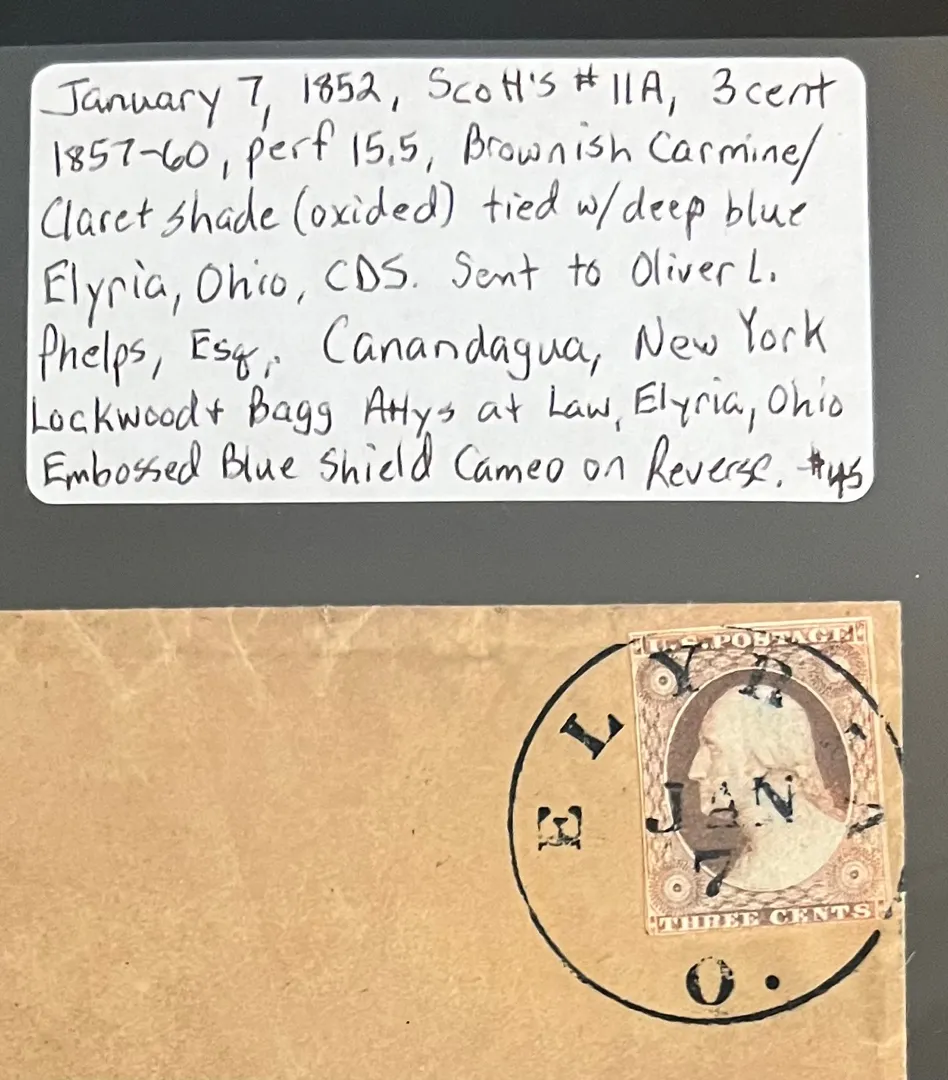 January 7, 1852, Scott's #11A, 3 cent
1857-60, perf 15.5, Brownish Carmine/
Claret shade (oxided) tied w/deep blue
Elyria, Ohio, CDS. Sent to Oliver L.
Phelps, Esq,. Canandagua, New York
Lockwood + Bagg Attys at Law, Elyria, Ohio
Embossed Blue Shield Cameo on Reverse. #45
U.S. POSTAGE
ELYRIA
JAN
7
THREE CENTS
O.